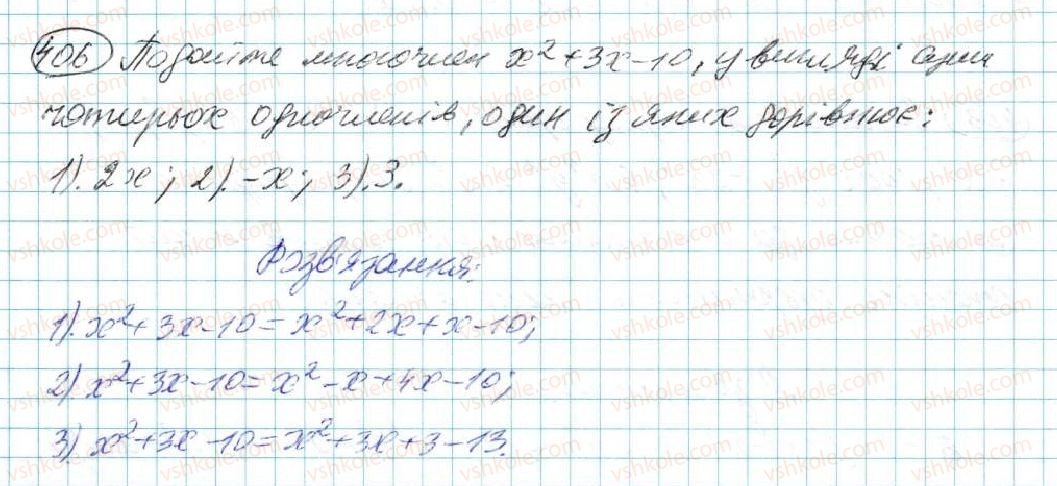 406 Подайте многочлен x²+3x-10, у вигляді суми
чотирьох одночленів, один із яких дорівнює:
1). 2x; 2). -x; 3). 3.
Розв'язання:
1). x²+3x-10=x²+2x+x-10;
2). x²+3x-10=x²-x+4x-10;
3). x²+3x-10=x²+3x+3-13.